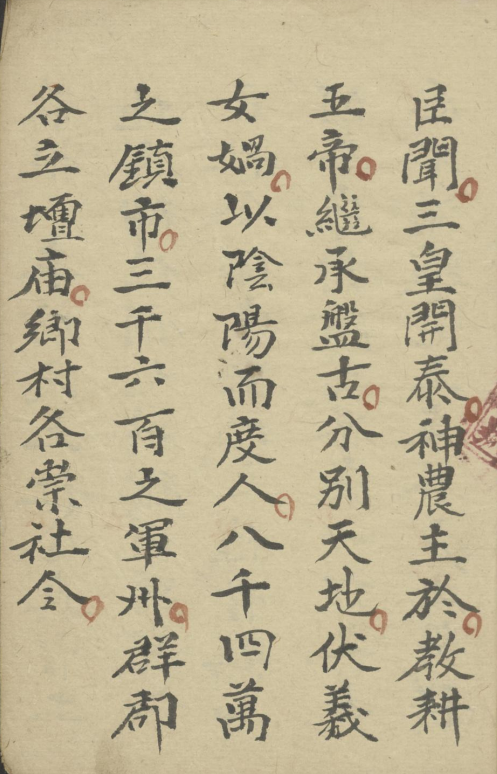 臣聞三皇開泰神農主於教耕
五帝繼承盤古分別天地伏羲
女媧以陰陽而度人八千四萬
之鎮市三千六百之軍州群郡
各立壇庙鄉村各崇社令